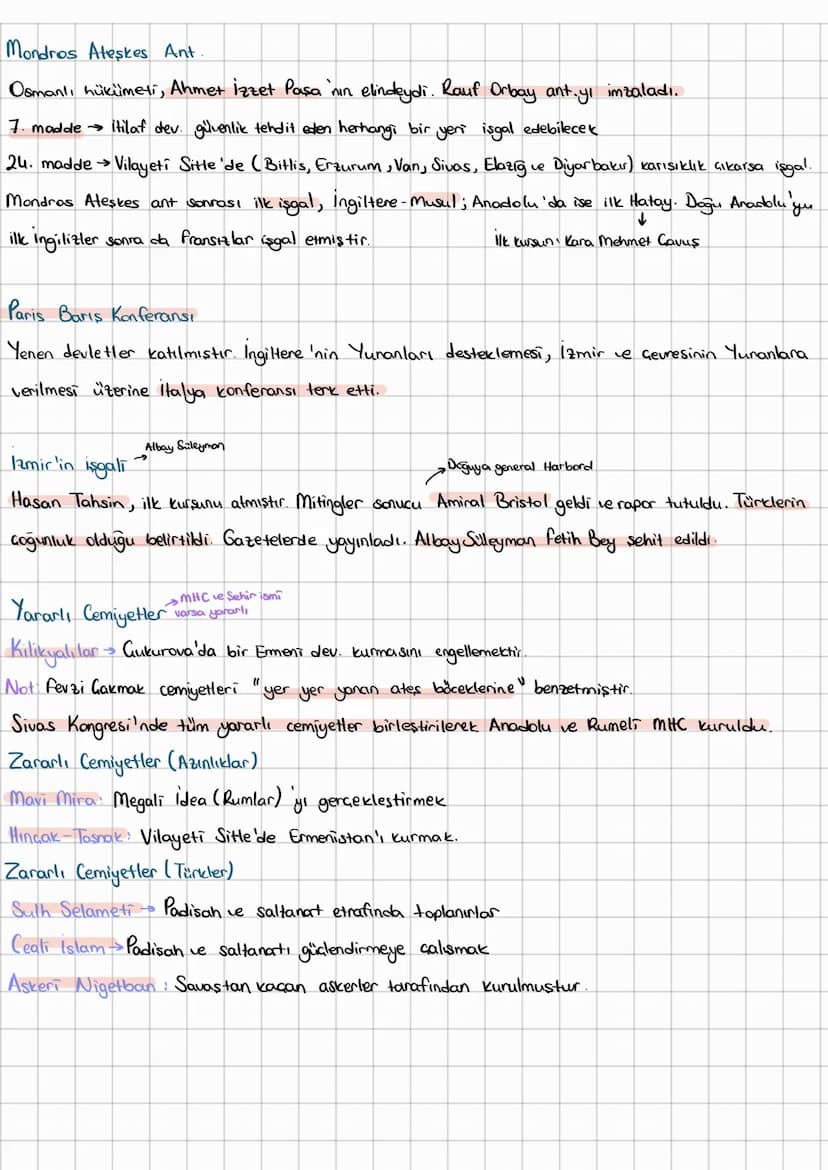 Mondros Ateşkes Ant.
Osmanlı hükümeti, Ahmet İzzet Paşa'nın elindeydi. Rauf Orbay ant.yı imzaladı.
7. madde → itilaf dev. güvenlik tehdit eden herhangi bir yeri işgal edebilecek
24. madde → Vilayeti Sitte'de (Bitlis, Erzurum, Van, Sivas, Elazığ ve Diyarbakır) karışıklık çıkarsa işgal.
Mondros Ateşkes ant sonrası ilk işgal, İngiltere-Musul; Anadolu'da ise ilk Hatay. Doğu Anadolu'yu
↓
ilk ingilizler sonra da fransızlar işgal etmiştir. ilk kurşun: Kara Mehmet Çavuş
Paris Barış Konferansı
Yenen devletler katılmıştır. İngiltere'nin Yunanları desteklemesi, İzmir ve çevresinin Yunanlara
verilmesi üzerine İtalya konferansı terk etti.
İzmir'in işgali → Albay Süleyman
→ Doğuya general Harbord
Hasan Tahsin, ilk kurşunu atmıştır. Mitingler sonucu Amiral Bristol geldi ve rapor tutuldu. Türklerin
çoğunluk olduğu belirtildi. Gazetelerde yayınladı. Albay Süleyman Fetih Bey şehit edildi.
Yararlı Cemiyetler → MHC ve Şehir ismi
varsa yararlı
Kilikyalılar → Çukurova'da bir Ermeni dev. kurmasını engellemektir.
Not: Fevzi Çakmak cemiyetleri "yer yer yanan ateş böceklerine" benzetmiştir.
Sivas Kongresi'nde tüm yararlı cemiyetler birleştirilerek Anadolu ve Rumeli MHC kuruldu.
Zararlı Cemiyetler (Azınlıklar)
Mavi Mira: Megali İdea (Rumlar)'yı gerçekleştirmek
Hınçak-Taşnak: Vilayeti Sitte'de Ermenistan'ı kurmak.
Zararlı Cemiyetler (Türkler)
Sulh Selameti → Padişah ve saltanat etrafında toplanırlar
Ceali İslam → Padişah ve saltanatı güçlendirmeye çalışmak
Askeri Nigehban: Savaştan kaçan askerler tarafından kurulmuştur.